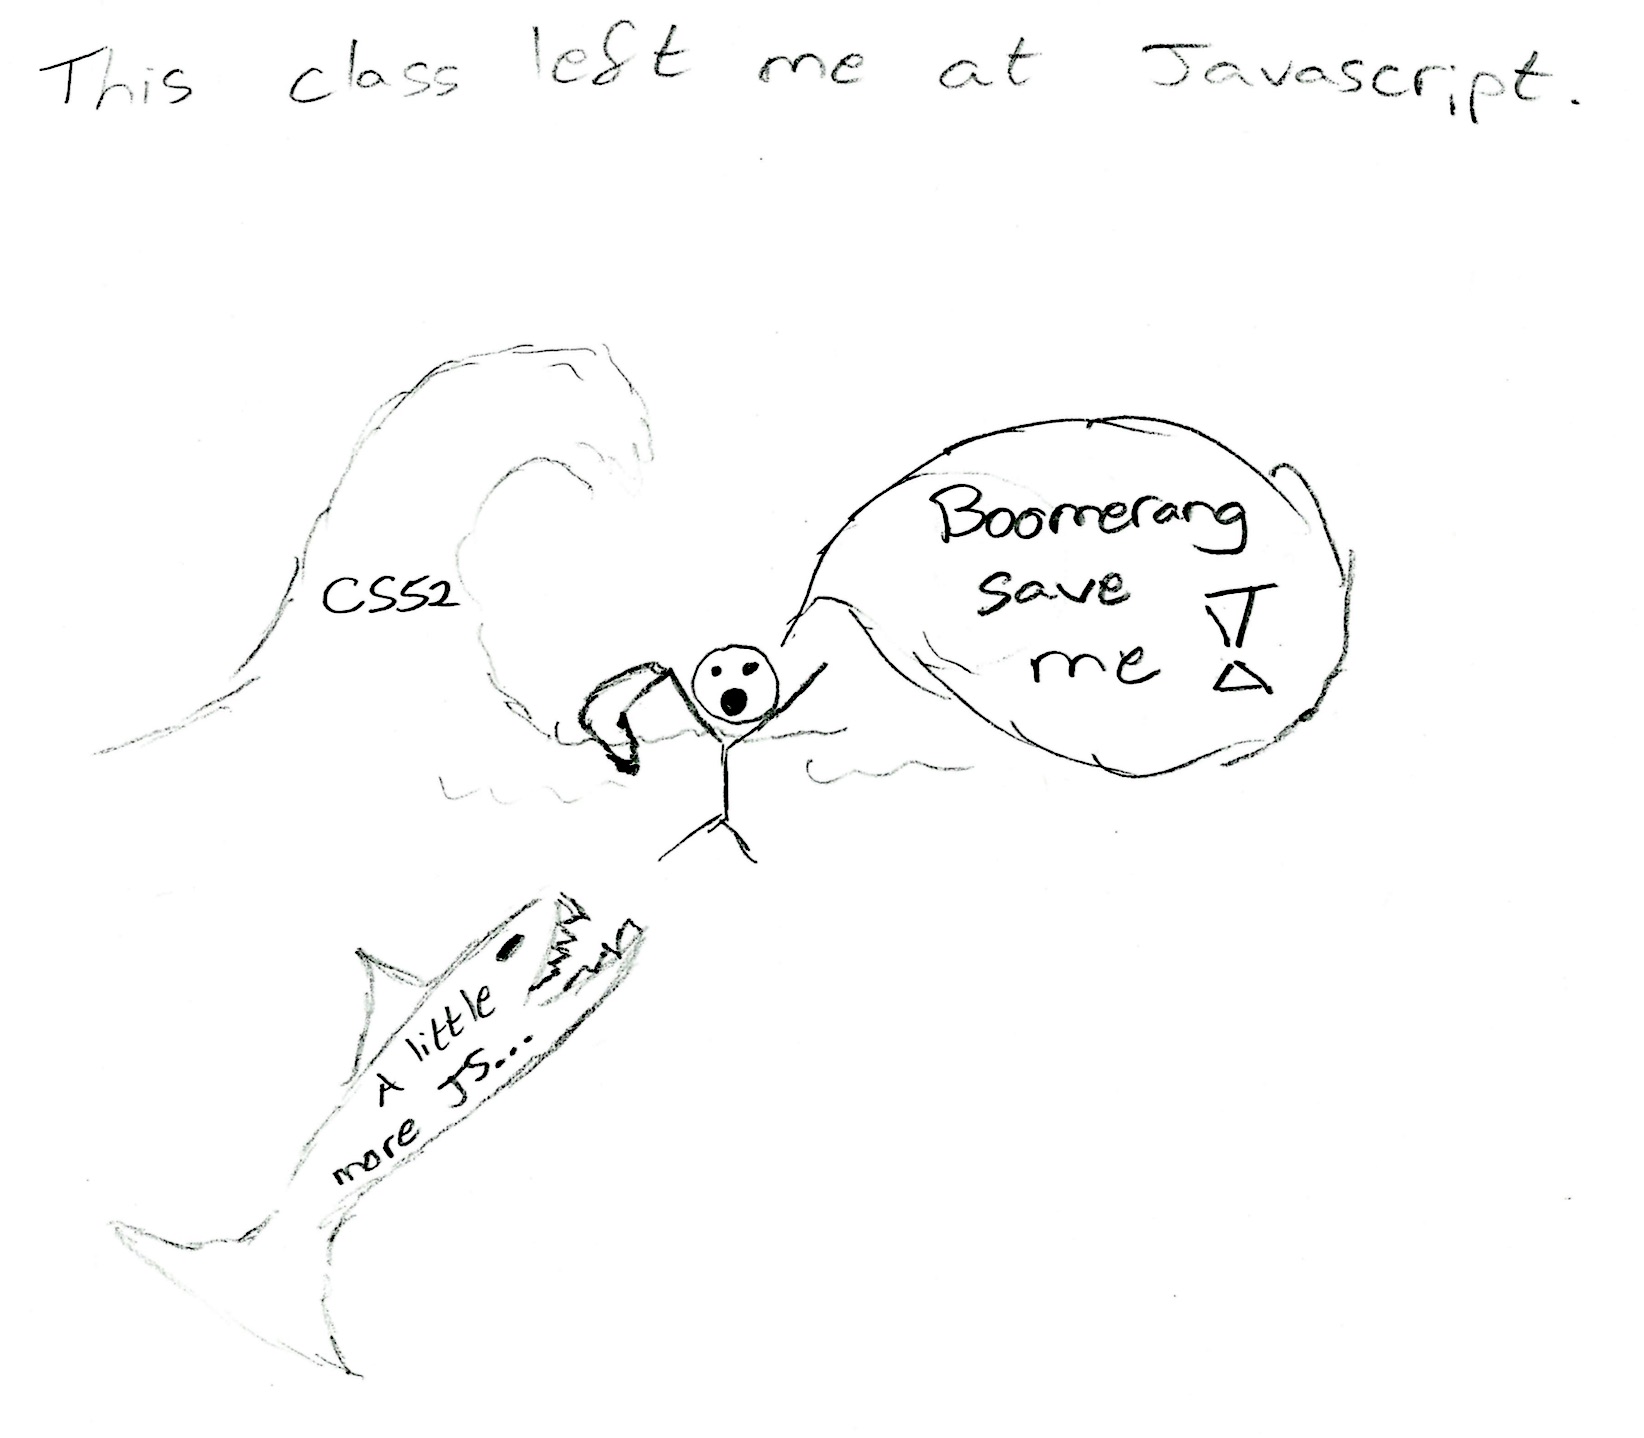 This class left me at Javascript.
CS52
Boomerang
save
me !
A little
more JS...